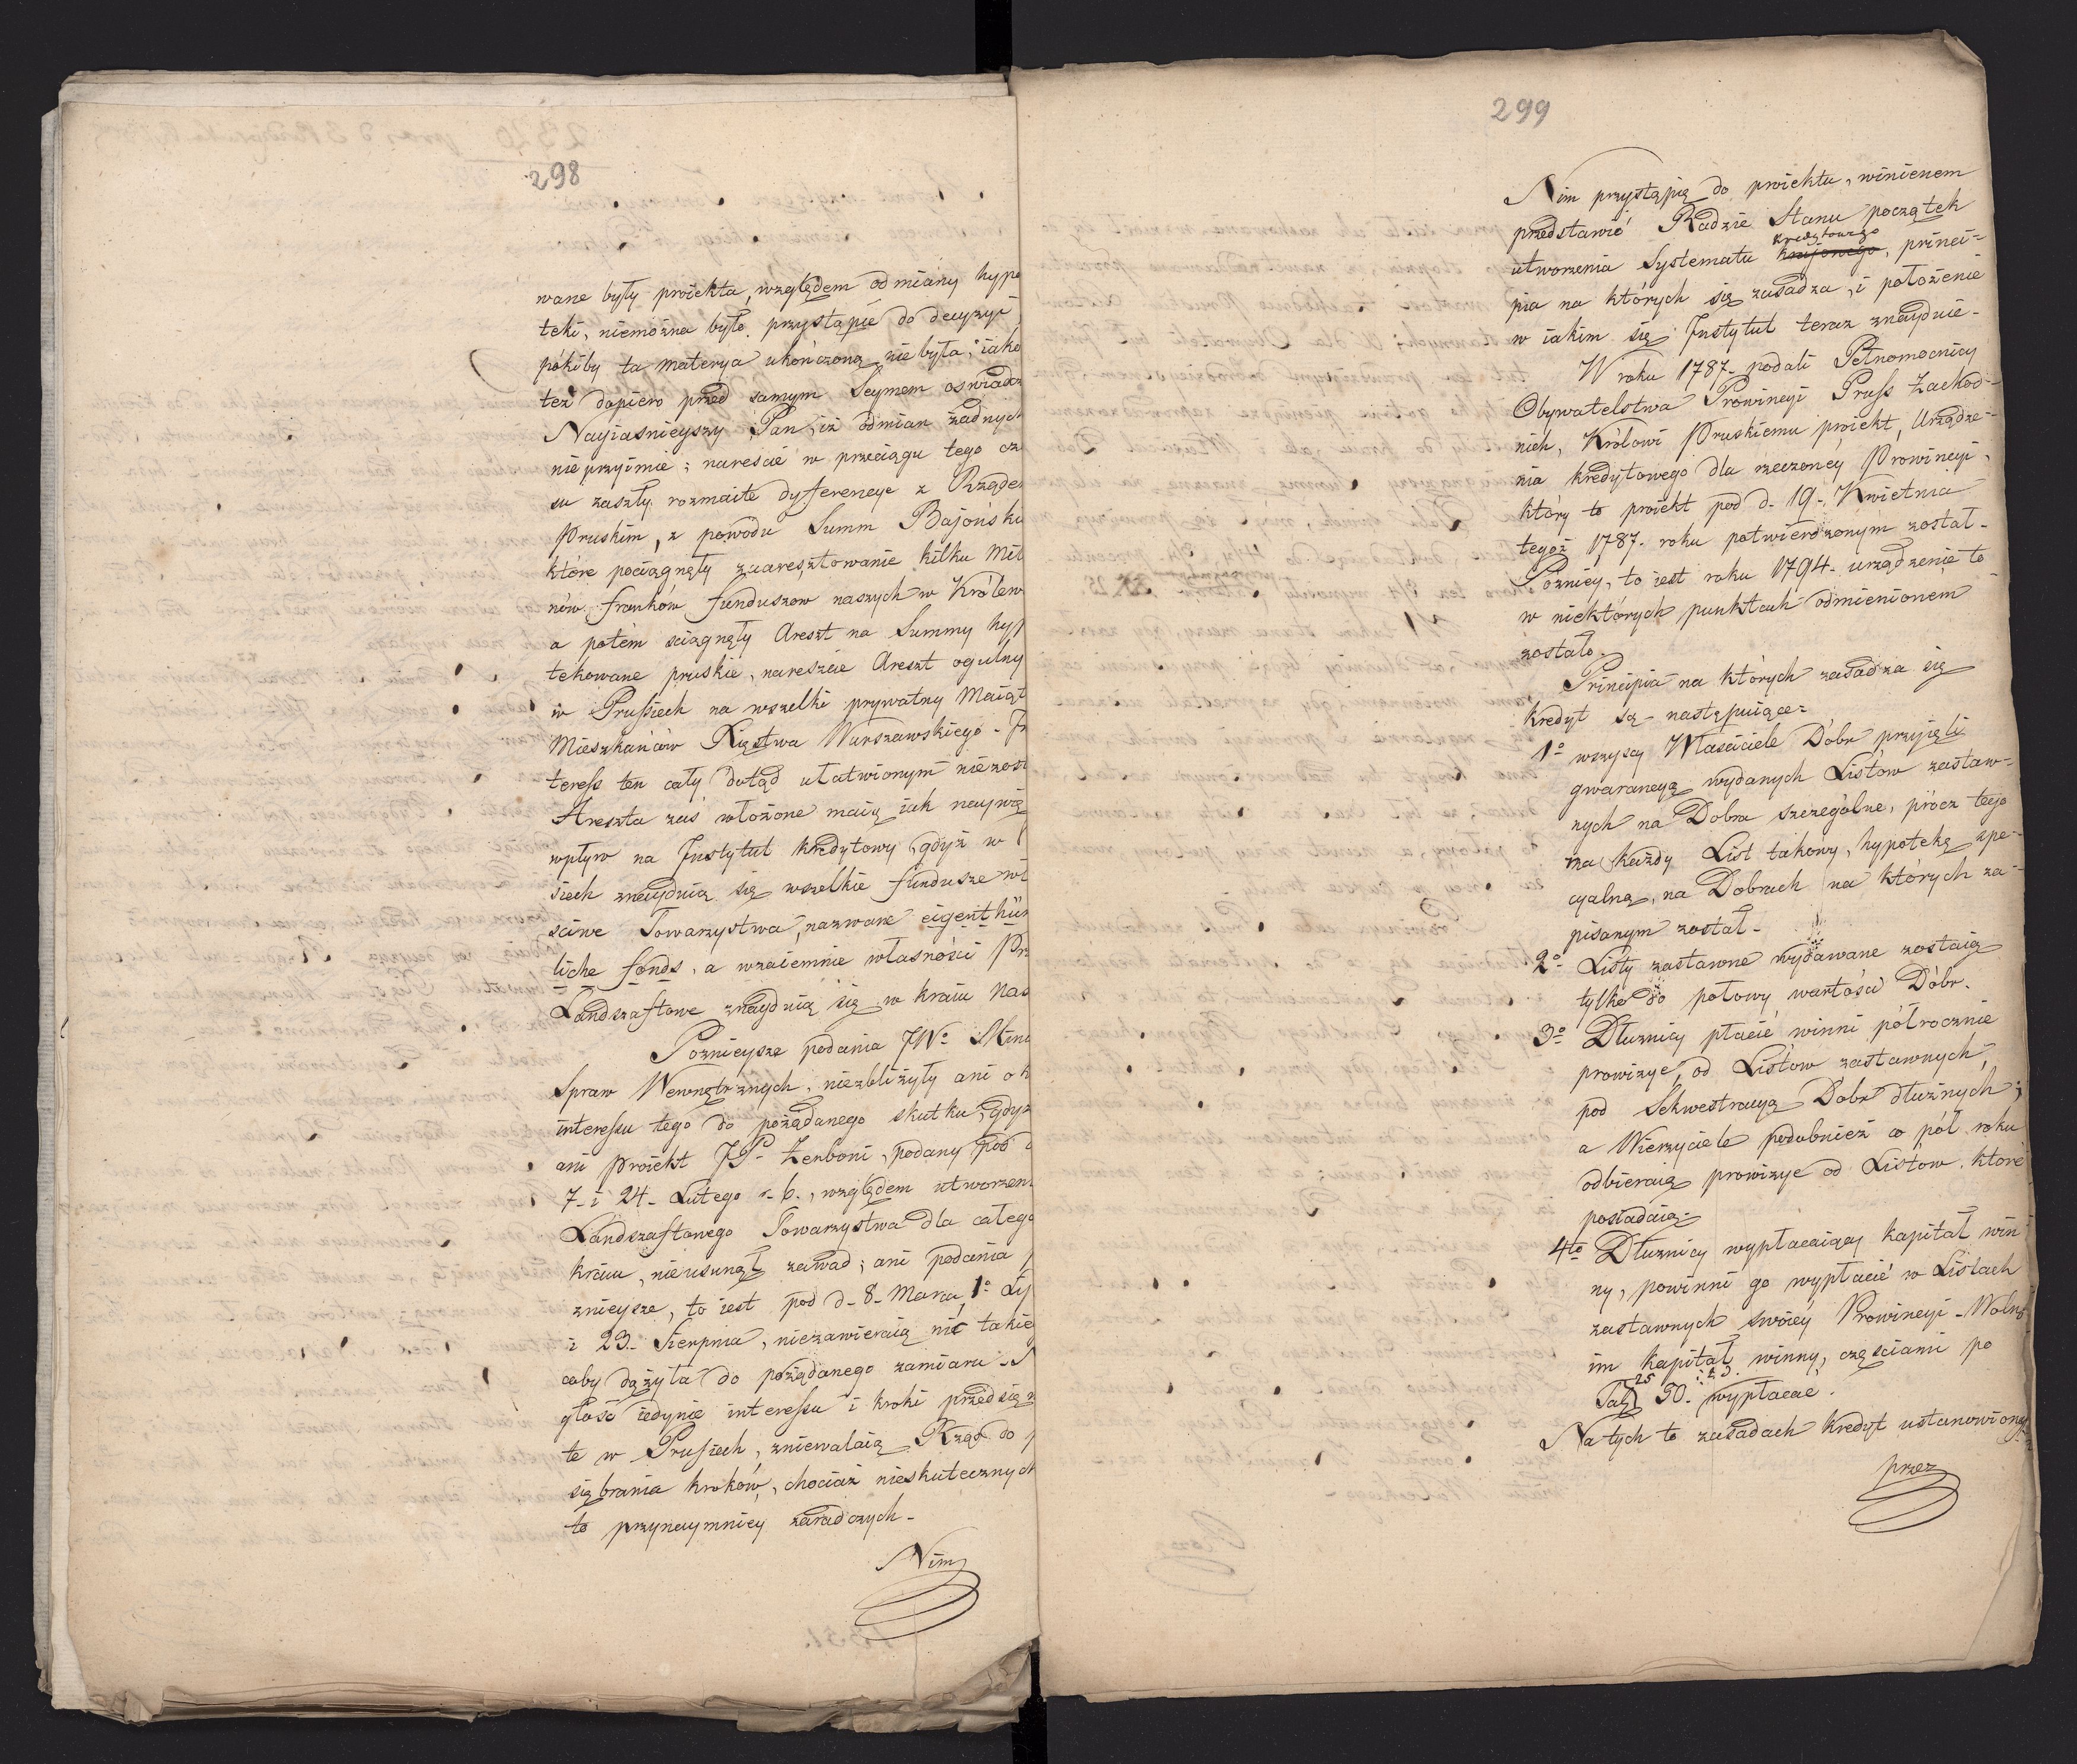 298
wane były proiekta, względem odmiany hype
teki, niemożna było przystąpić do decyzyi
pókiby ta materya ukończoną nie była; iako
też dopiero przed samym Seymem oswiadcz
Nayiasnieyszy Pan, iż odmian żadnych
nieprzyimie; nareście w przeciągu tego cza
su zaszły rozmaite dyfferencye z Rządem
Pruskim, z powodu Summ Bajońsk
które pociągnęły zaaresztowanie kilku Mil
nów franków funduszow naszych w Królew
a potém sciągnęły Areszt na Summy hyp
tekowane pruskie, nareszcie Areszt ogulny
w Prussiech na wszelki prywatny Maiąt
Mieszkańców Xięstwa Warszawskiego - In
teress ten cały dotąd ułatwionym niezost
Areszta zaś włożone maią iak naywię
wpływ na Instytut kredytowy, gdyż w P
siech znayduią się wszelkie fundusze wł
sciwe Towarzystwa, nazwane eigenthüm
liche fonds, a wzaiemnie własności Pr
Landszaftowe znayduią się w kraiu nas
Poznieysze podania JWo Min
Spraw Wewnętrznych, niezbliżyły ani o k
interessu tego do pożądanego skutku, gdyż
ani proiekt JP. Zerboni, podany pod d
7. i 24. Lutego r. b., względem utworzen
Landszaftowego Towarzystwa dla całego
kraiu, nieusunął zawad; ani podania p
znieysze, to iest pod d. 8. Marca, 1o Li
i 23. Sierpnia, niezawieraią nic takieg
coby dążyła do pożądanego zamiaru - N
głość iedynie interessu i kroki przedsięw
te w Prusiech, zniewalaią Rząd do p
się brania kroków, chociaż nieskutecznych
to przynaymniey zaradczych.
Nim
299
Nim przystąpią do proiektu, winienem
przedstawić Radzie Stanu początek
kredytowego
utworzenia Systematu krajowego, princi-
pia na których się zasadza, i położenie
w iakim się Instytut teraz znayduie.
W roku 1787. podali Pełnomocnicy
Obywatelstwa Prowincyi Pruss Zachod-
nich, Królowi Pruskiemu proiekt, Urządze-
nia kredytowego dla rzeczonéy Prowincyi,
który to proiekt pod d. 19. Kwietnia
tegoż 1787. roku potwierdzonym został.
Późniey, to iest roku 1794. urządzenie to
w niektórych punktach odmienioném
zostało.
Principia na których zasadza się
kredyt są następuiące:
1o wszyscy Właściciele Dóbr przyięli
gwarancyą wydanych Listów zastaw-
nych na Dobra szczególne, prócz tego
ma każdy List takowy, hypotekę spe-
cyalną, na Dobrach na których za-
pisanym został.
2o Listy zastawne wydawane zostaią
tylko do połowy wartości Dóbr.
3o Dłużnicy płacić winni półrocznie
prowizye, od Listów zastawnych,
pod Sekwestracyą Dóbr dłużnych;
a Wierzyciele podobnież co pół roku
odbieraią prowizye od Listów, które
posiadaią.
4to Dłużnicy wypłacaiący kapitał win
ny, powinni go wypłacić w Listach
zastawnych swoiéy Prowincyi. Wolno
im kapitał winny, częściami po
25 i t. d.
Tal. 50. wypłacać.
Na tych to zasadach kredyt ustanowiony
przez